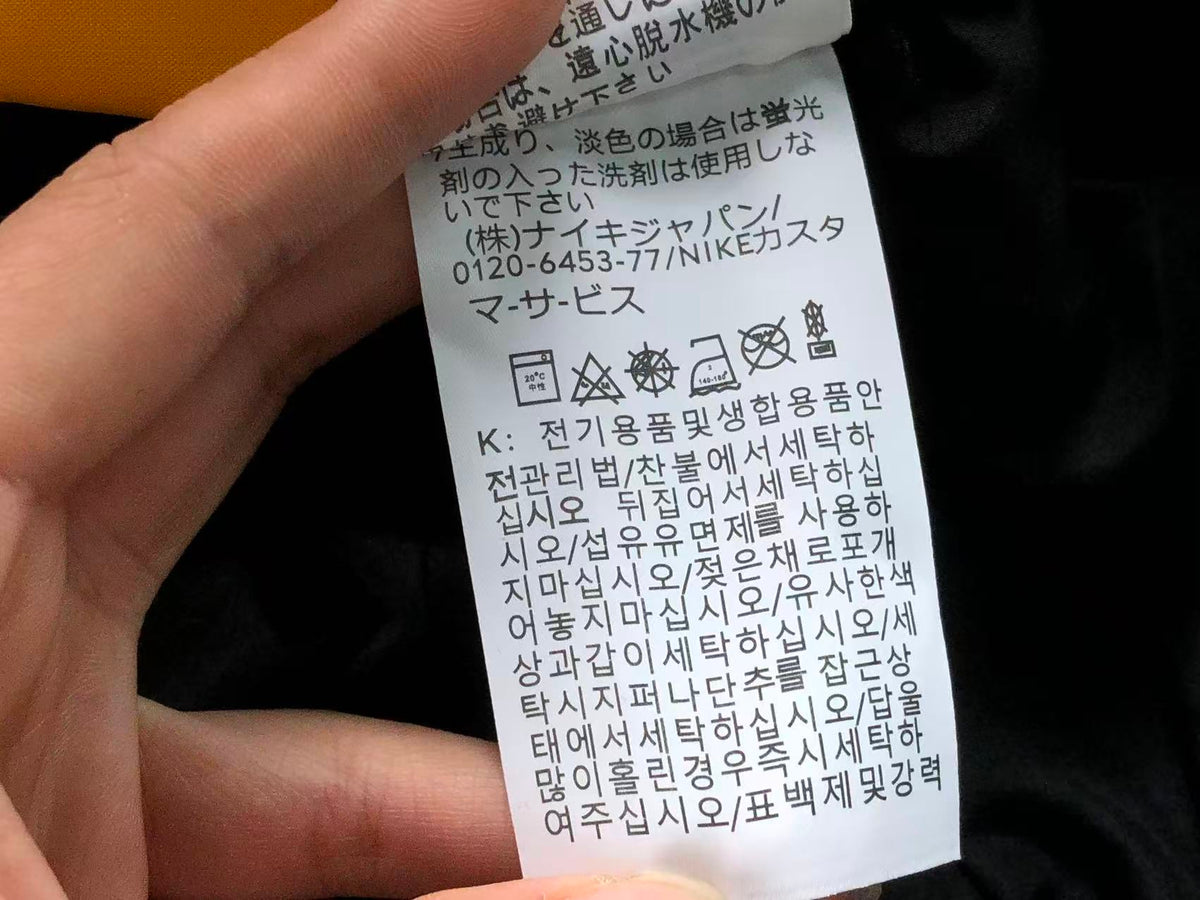 を通し
は、遠心脱水機の
避け下さい
生成り、淡色の場合は蛍光
剤の入った洗剤は使用しな
いで下さい
(株)ナイキジャパン/
0120-6453-77/NIKEカスタ
マ-サ-ビス
20°C
中性
2
140-160°
K: 전기용품및생합용품안
전관리법/찬불에서세탁하
십시오 뒤집어서세탁하십
시오/섭유유면제를 사용하
지마십시오/젖은채로포개
어놓지마십시오/유사한색
상과갑이세탁하십시오/세
탁시지퍼나단추를 잡근상
태에서세탁하십시오/답울
많이홀린경우즉시세탁하
여주십시오/표백제및강력